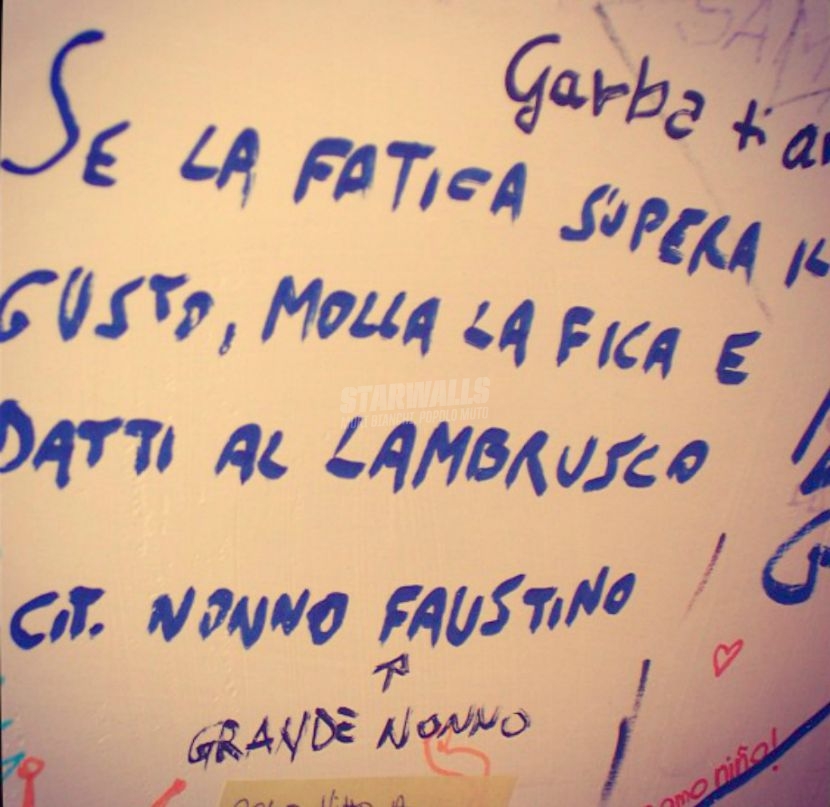 Garba ti
SE LA FATICA SUPERA IL
GUSTO, MOLLA LA FICA E
DATTI AL LAMBRUSCO
STARWALLS
MURI BIANCHI, POPOLO MUTO
CIT. NONNO FAUSTINO
GRANDE NONNO
como niño!